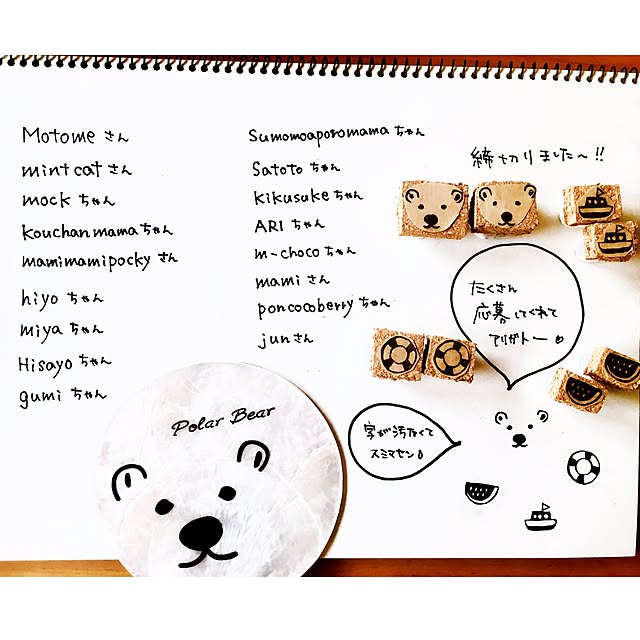 Motome さん
mintcat さん
mock ちゃん
kouchanmama ちゃん
mamimamipocky さん
hiyo ちゃん
miya ちゃん
Hisayo ちゃん
gumi ちゃん
Sumomoaporomama ちゃん
Satoto ちゃん
kikusuke ちゃん
ARI ちゃん
m-choco ちゃん
mami さん
poncocoberry ちゃん
jun さん
締切りました〜!!
たくさん
応募してくれて
アリガトー
字が汚なくて
スミマセン
Polar Bear